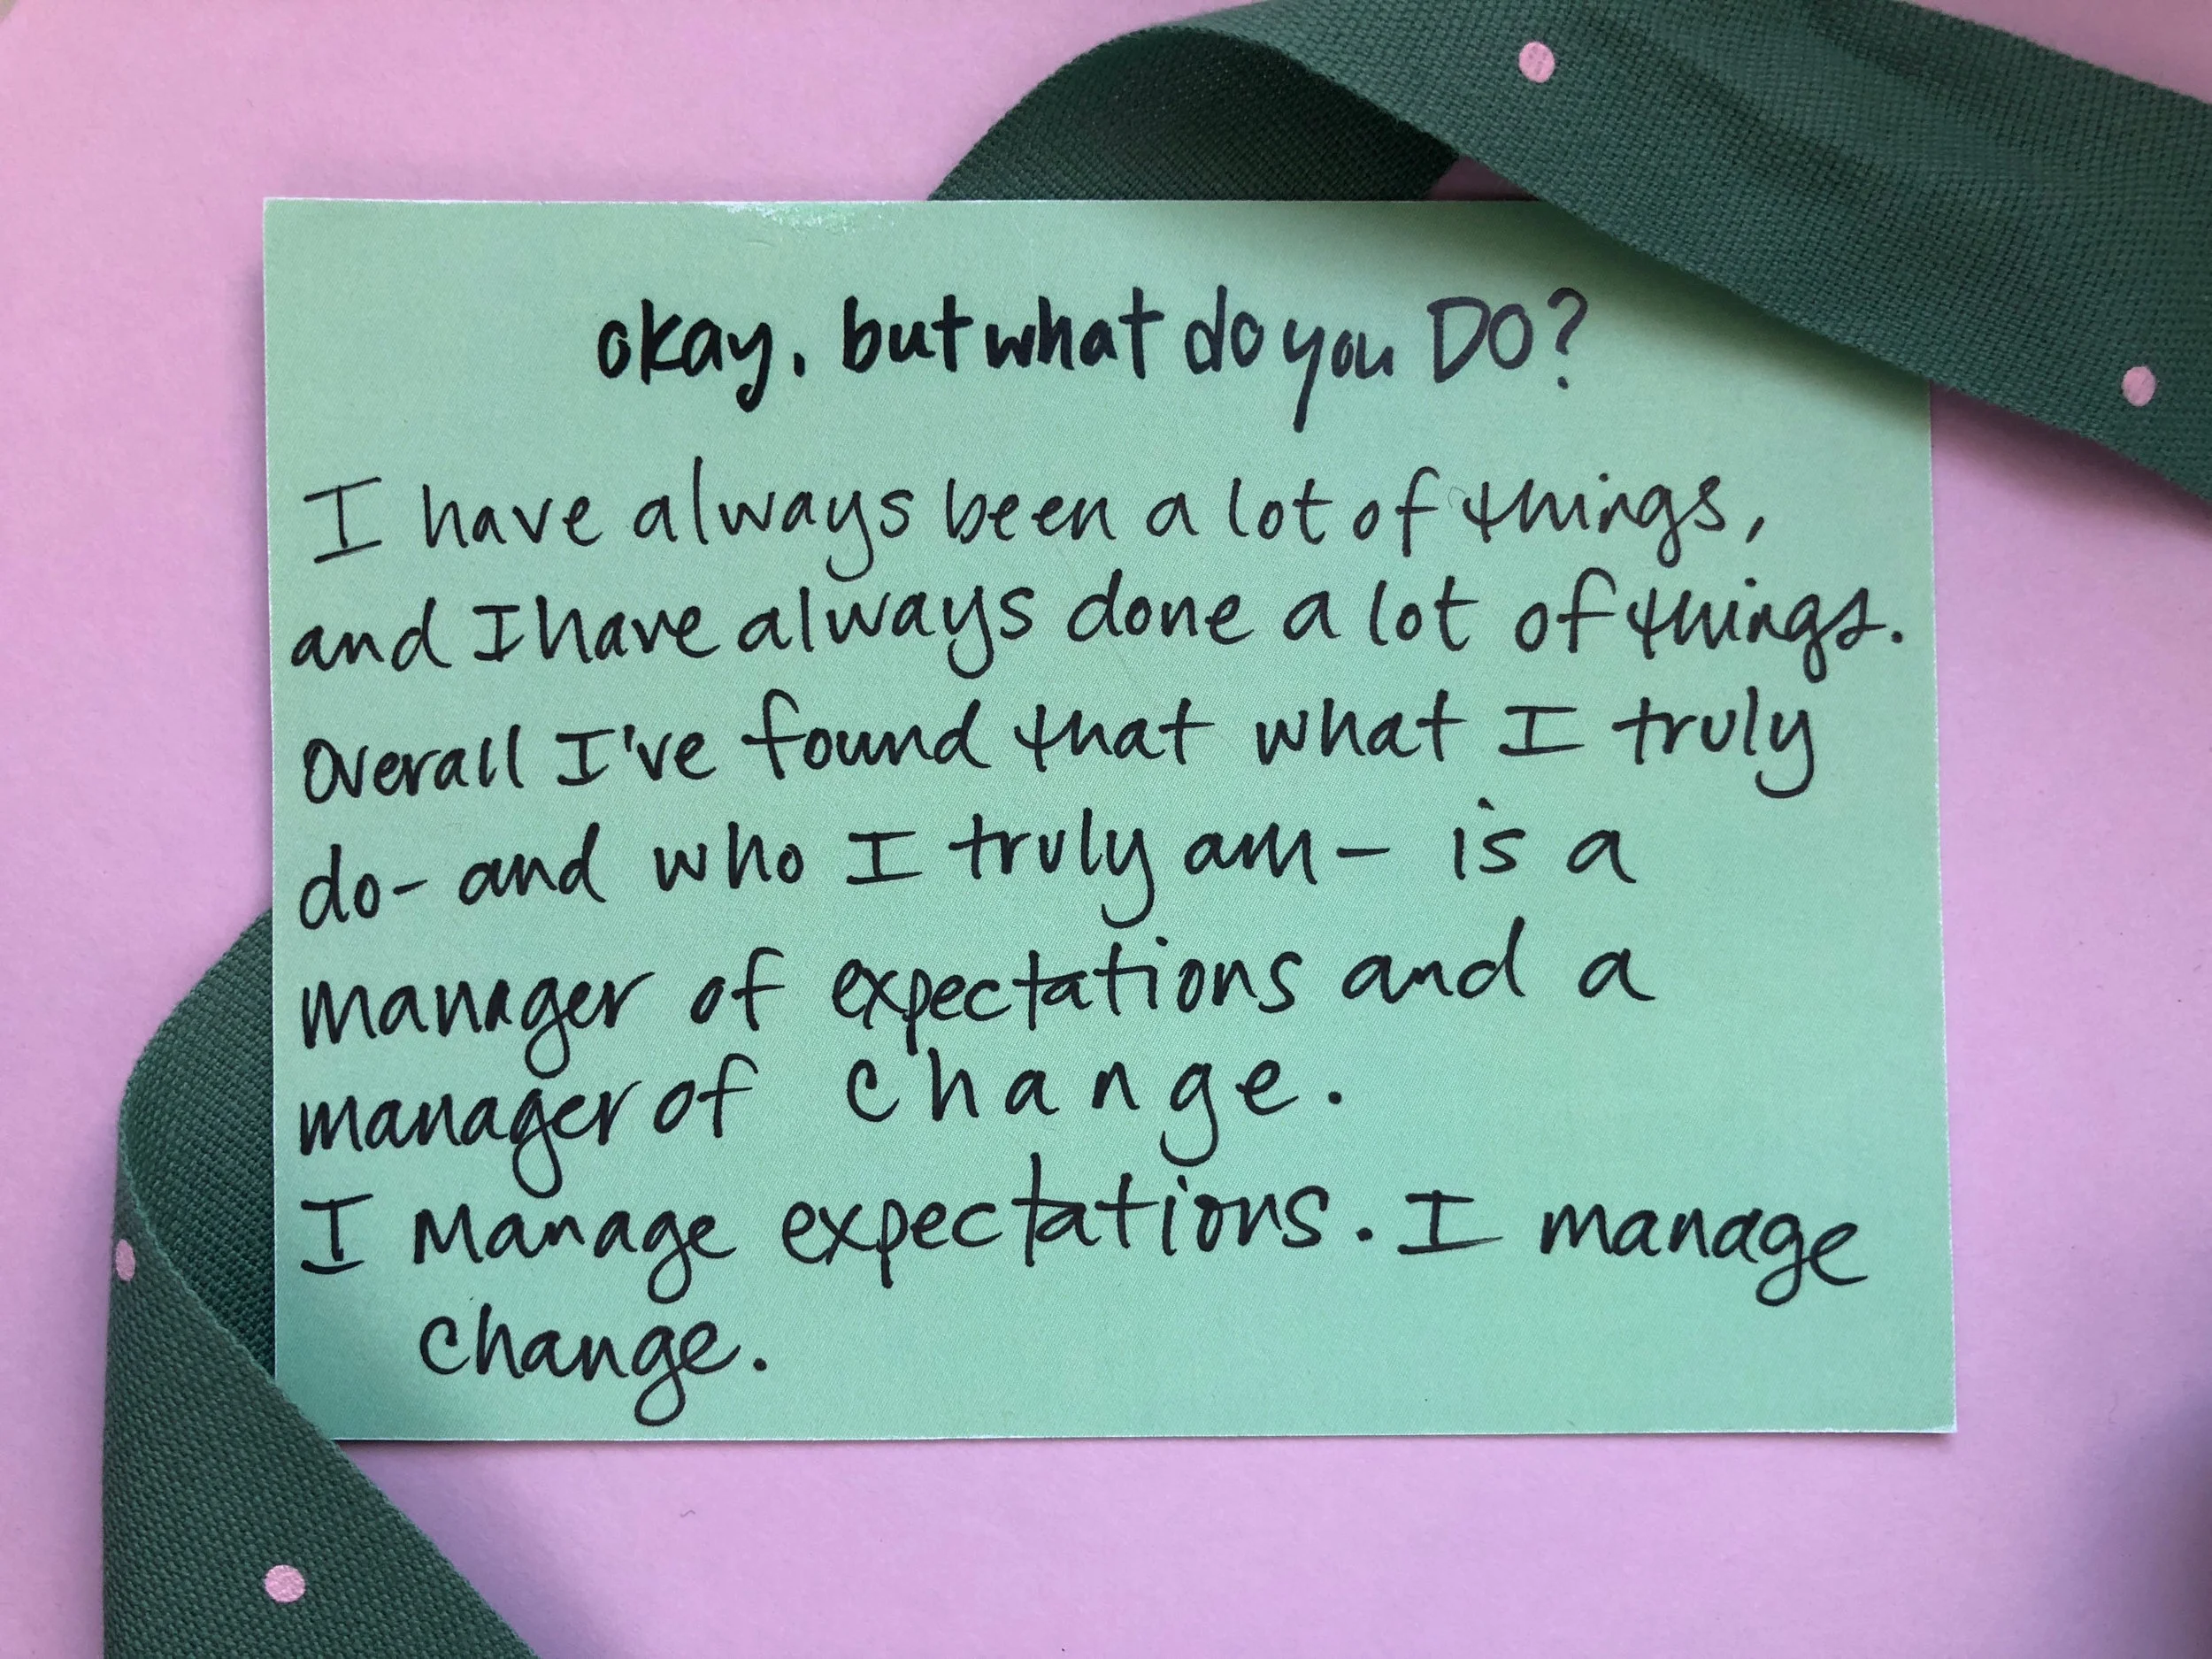 okay. but what do you DO?
I have always been a lot of things,
and I have always done a lot of things.
Overall I've found that what I truly
do- and who I truly am- is a
manager of expectations and a
manager of change.
I manage expectations. I manage
change.